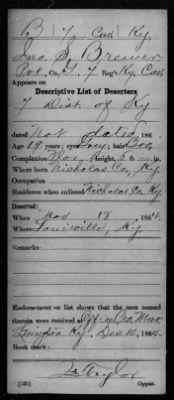 B 7 Cav Ky.
Jno. S. Brewer
Pvt, Co. G, 7 Reg't Ky. Cav.
Appears on
Descriptive List of Deserters
7 Dist. of Ky
dated Not dated, 186
Age 19 years; eyes Gray; hair
Complexion; height, 5 ft. in.
Where born Nicholas Co., Ky.
Occupation
Residence when enlisted Nicholas Co. Ky.
Deserted:
When Nov 18, 1864.
Where Louisville, Ky.
Remarks:
Endorsement on list shows that the men named
therein were received at
Lexington Ky., Dec 10, 1864.
Book mark:
Taylor
(525) Copyist.